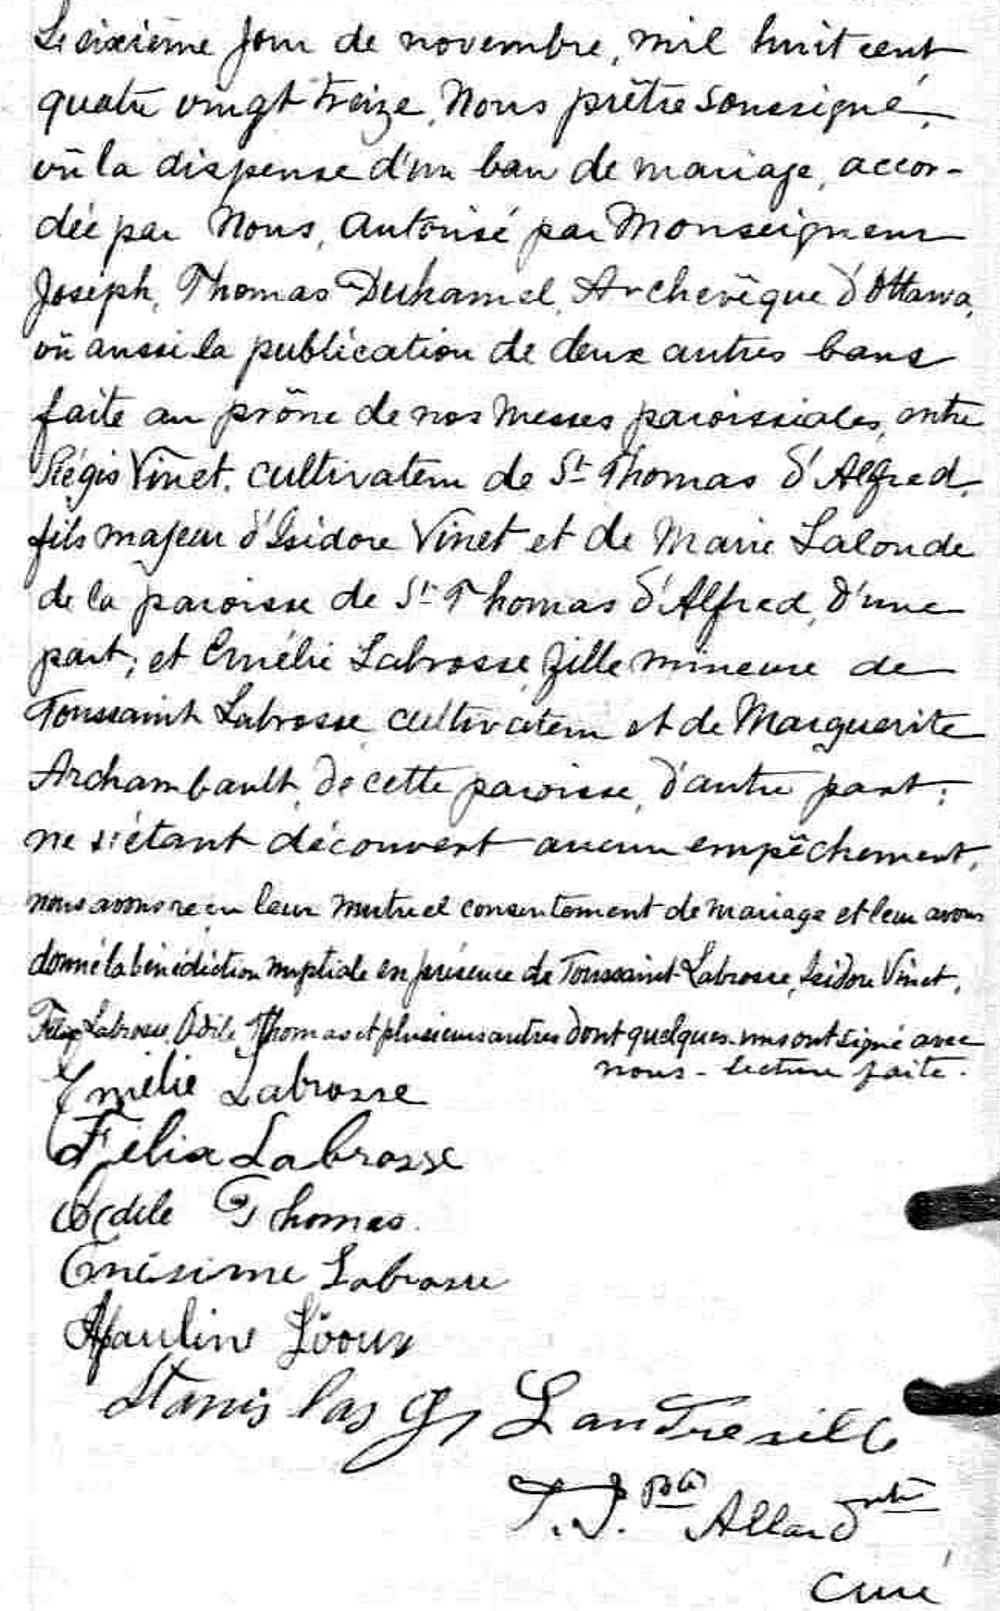 Le sixième jour de novembre, mil huit cent
quatre vingt treize, Nous prêtre soussigné,
vû la dispense d'un ban de mariage, accor-
dée par Nous, autorisé par Monseigneur
Joseph, Thomas Duhamel, Archevêque d'Ottawa,
vû aussi la publication de deux autres bans
faite au prône de nos Messes paroissiales, entre
Régis Vinet, cultivateur de St Thomas d'Alfred,
fils majeur d'Isidore Vinet et de Marie Lalonde
de la paroisse de St Thomas d'Alfred, d'une
part; et Emélie Labrosse, fille mineure de
Toussaint Labrosse cultivateur et de Marguerite
Archambault, de cette paroisse, d'autre part;
ne s'étant découvert aucun empêchement,
nous avons reçu leur mutuel consentement de mariage et leur avons
donné la bénédiction nuptiale en présence de Toussaint Labrosse, Isidore Vinet,
Félix Labrosse, Odile Thomas et plusieurs autres dont quelques-uns ont signé avec
nous - lecture faite.
Emélie Labrosse
Félix Labrosse
Odile Thomas.
Onésime Labrosse
Stanislas G. Landreville
T. J. Bte Allard ptre
Curé